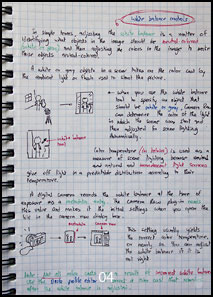 White balance models
In simple terms, adjusting the white balance is a matter of
identifying what objects in the image should be neutral coloured
(white or grey) and then adjusting the colours in the image to make
these objects neutral-coloured.
A white or grey objects in a scene takes on the colour cast by
the ambient light or flash used to shoot the picture.
← when you use the white balance
tool to specify an object that
should be white or grey, Camera Raw
can determine the color of the light
in which the scene was shot and
then adjusted to scene lighting
automatically.
white balance
tool
Color temperature (in kelvins) is used as a
measure of scene lighting because natural
and natural and incandescent light sources
give off light in a predictable distribution according to their
temperature.
A digital camera records the white balance at the time of
exposure as a metadata entry. The Camera Raw plug-in reads
this value and makes it the initial settings when you open the
file in the camera raw dialog box.
Metadata
Camera Raw
This setting usually yields
the correct color temperature,
or nearly so. You can adjust
the white balance if it is
not right.
Note: Not all color casts are a result of incorrect white balance.
Use the
to correct a color cast that remains
after the white balance is adjusted.
04